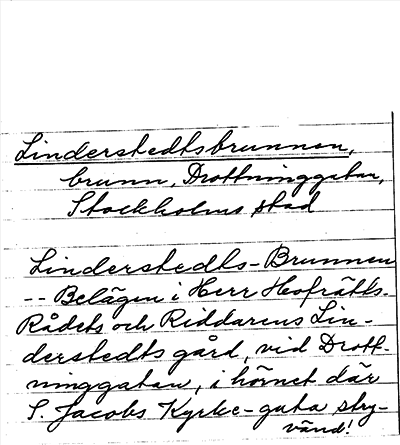 Linderstedtsbrunnen,
brunn, Drottninggatan,
Stockholms stad
Linderstedts-Brunnen
-- Belägen i Herr Hofrätts-
Rådets och Riddarens Lin-
derstedts gård, vid Drott-
ninggatan, i hörnet där
S. Jacobs Kyrke-gata stry-
vänd!